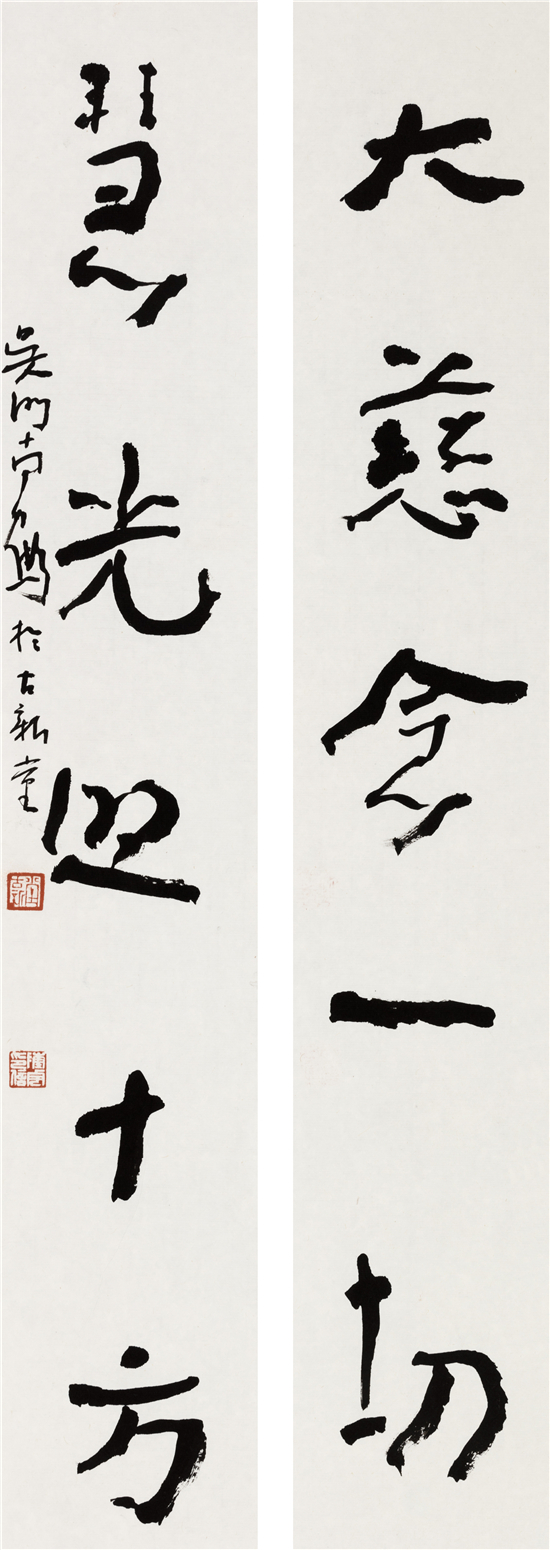 大慈念一切
慧光照十方
吴门 於古新堂